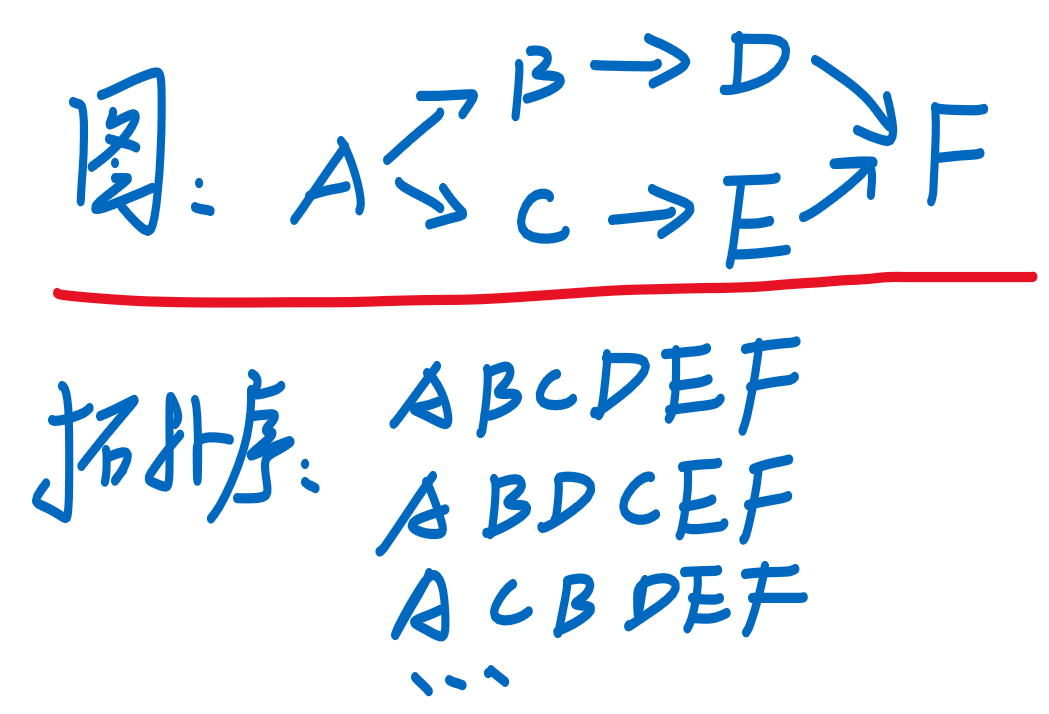 图: A B → D F
C → E
拓扑序: ABCDEF
ABDCEF
ACBDEF
...